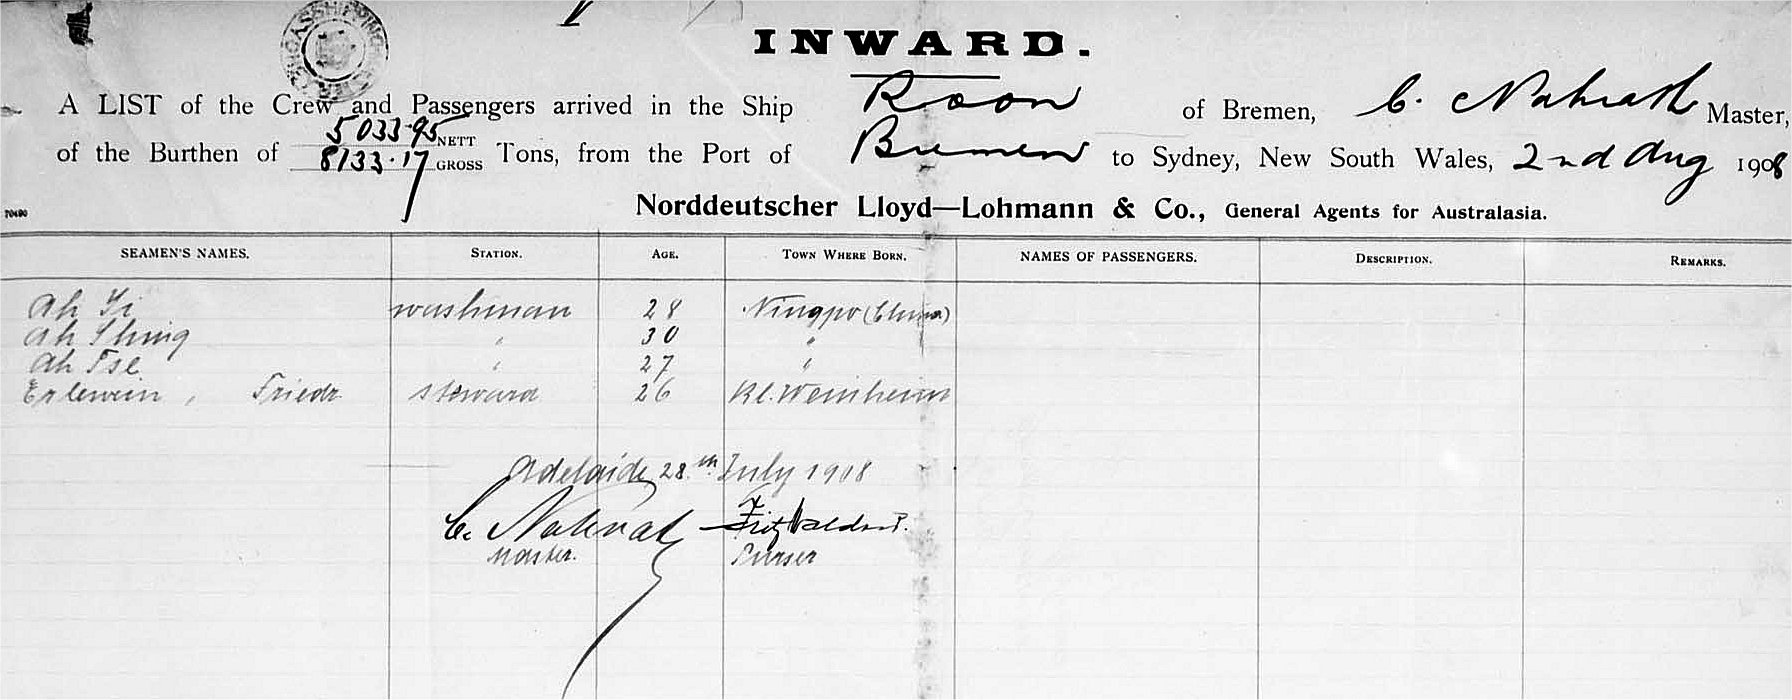 INWARD.
A LIST of the Crew and Passengers arrived in the Ship Roon of Bremen, C. Nahrath Master,
of the Burthen of 5033.95 NETT 8133.17 GROSS Tons, from the Port of Bremen to Sydney, New South Wales, 2nd Aug 1908
70490 Norddeutscher Lloyd—Lohmann & Co., General Agents for Australasia.
SEAMEN'S NAMES. STATION. AGE. TOWN WHERE BORN. NAMES OF PASSENGERS. DESCRIPTION. REMARKS.
Ah Yi washman 28 Ningpo (China)
Ah Shing " 30 "
Ah Tse " 27 "
Erlewein, Friedr. steward 26 Kl. Weinheim
Adelaide, 28th July 1908
C. Nahrath Fritz
Master. Purser